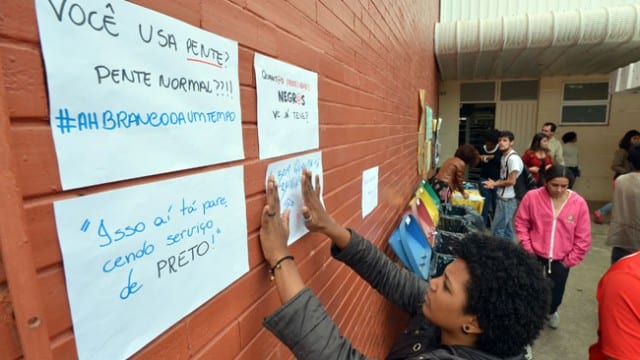 VOCÊ USA PENTE?
PENTE NORMAL???!!
#AHBRANCODAUMTEMPO
QUANTOS PROFESSORES
NEGROS
VC JÁ TEVE?
"Isso aí tá pare
cendo serviço
de PRETO!"